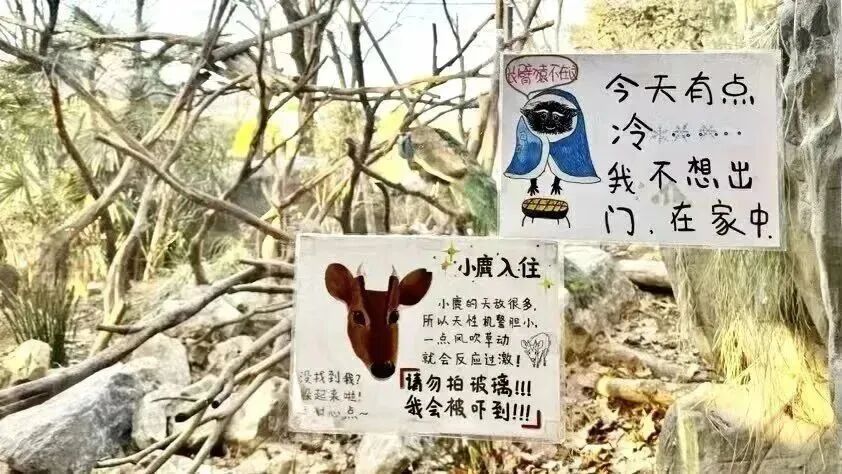 臂猿不在
今天有点
冷......
我不想出
门.在家中.
小鹿入住
小鹿的天敌很多,
所以天性机警胆小,
一点风吹草动
就会反应过激!
没找到我?
躲起来啦!
耐心点~
「请勿拍玻璃!!!
我会被吓到!!!」